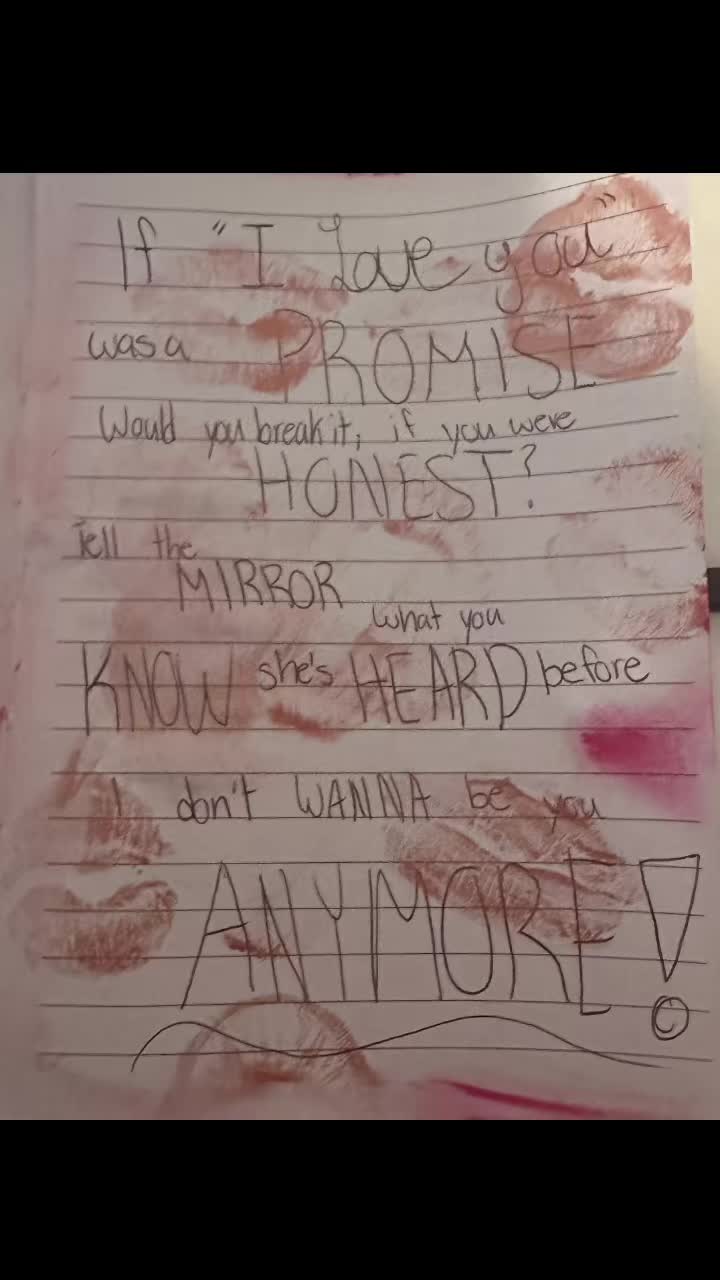 If "I Love you"
was a PROMISE
Would you break it, if you were
HONEST?
Tell the
MIRROR
what you
KNOW she's HEARD before
I don't WANNA be you
ANYMORE!